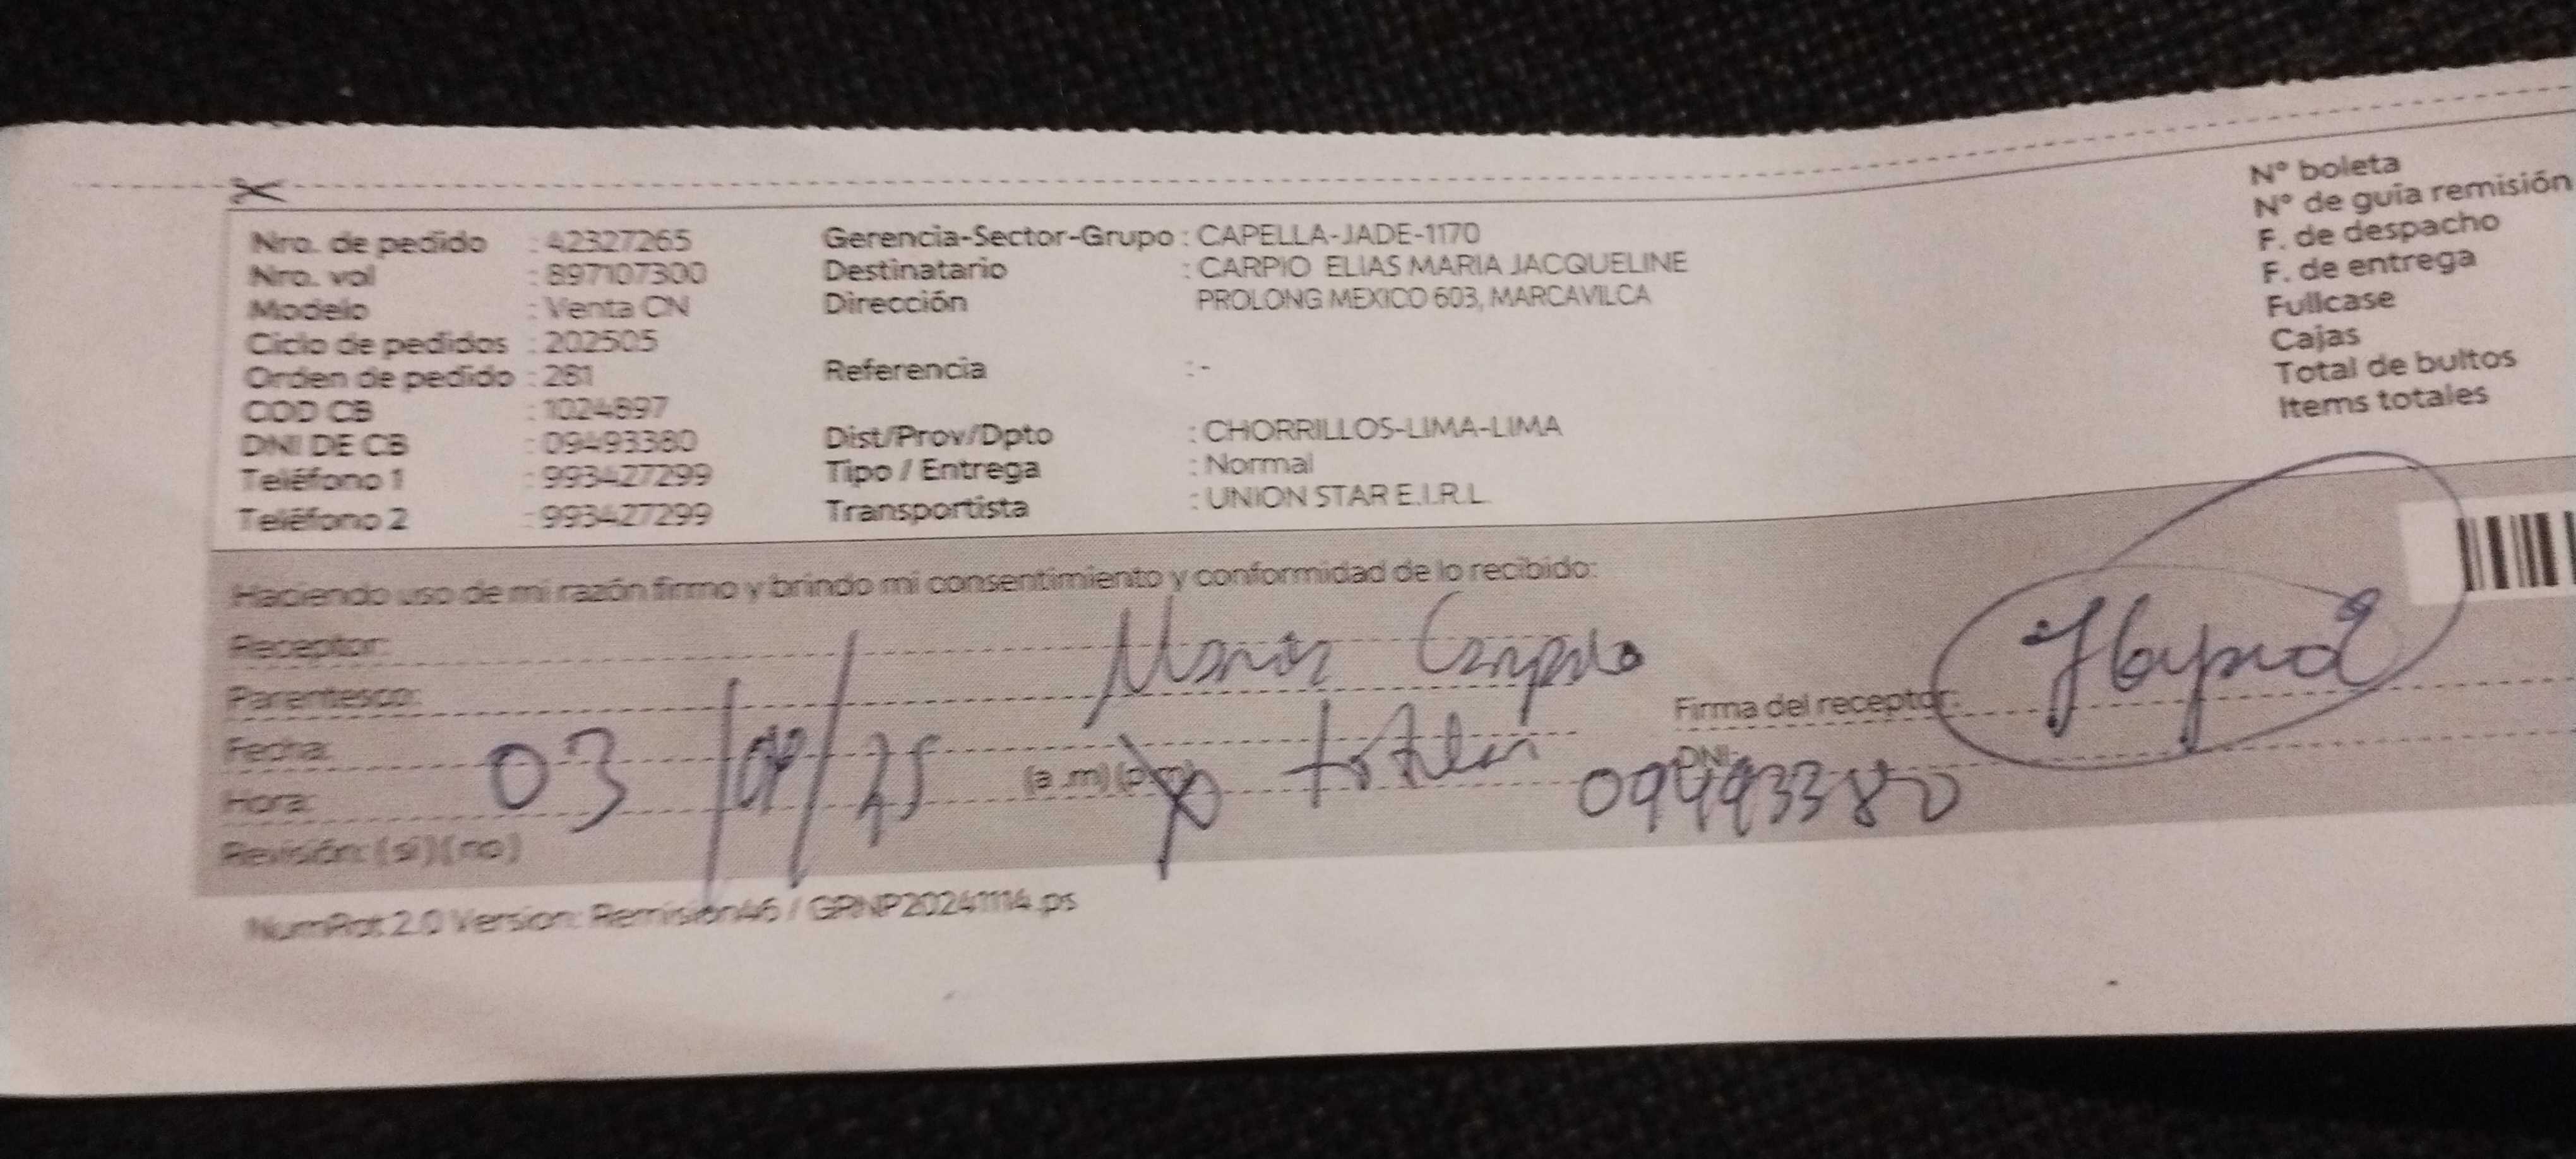 Nro. de pedido : 42327265
Nro. vol : 897107300
Modelo : Venta CN
Ciclo de pedidos : 202505
Orden de pedido : 281
COD CB : 1024897
DNI DE CB : 09493380
Teléfono 1 : 993427299
Teléfono 2 : 993427299
Gerencia-Sector-Grupo : CAPELLA-JADE-1170
Destinatario : CARPIO ELIAS MARIA JACQUELINE
Dirección PROLONG MEXICO 603, MARCAVILCA
Referencia :-
Dist/Prov/Dpto : CHORRILLOS-LIMA-LIMA
Tipo / Entrega : Normal
Transportista : UNION STAR E.I.R.L.
N° boleta
N° de guía remisión
F. de despacho
F. de entrega
Fullcase
Cajas
Total de bultos
Items totales
Haciendo uso de mi razón firmo y brindo mi consentimiento y conformidad de lo recibido:
Receptor: Maria Carpio
Parentesco:
Fecha: 03 / 04 / 25
Hora: (a .m) (p.m)
Revisión: (si) (no)
Firma del receptor:
DNI: 09493380
NumRot 2.0 Version: Remision46 / GRNP20241114.ps